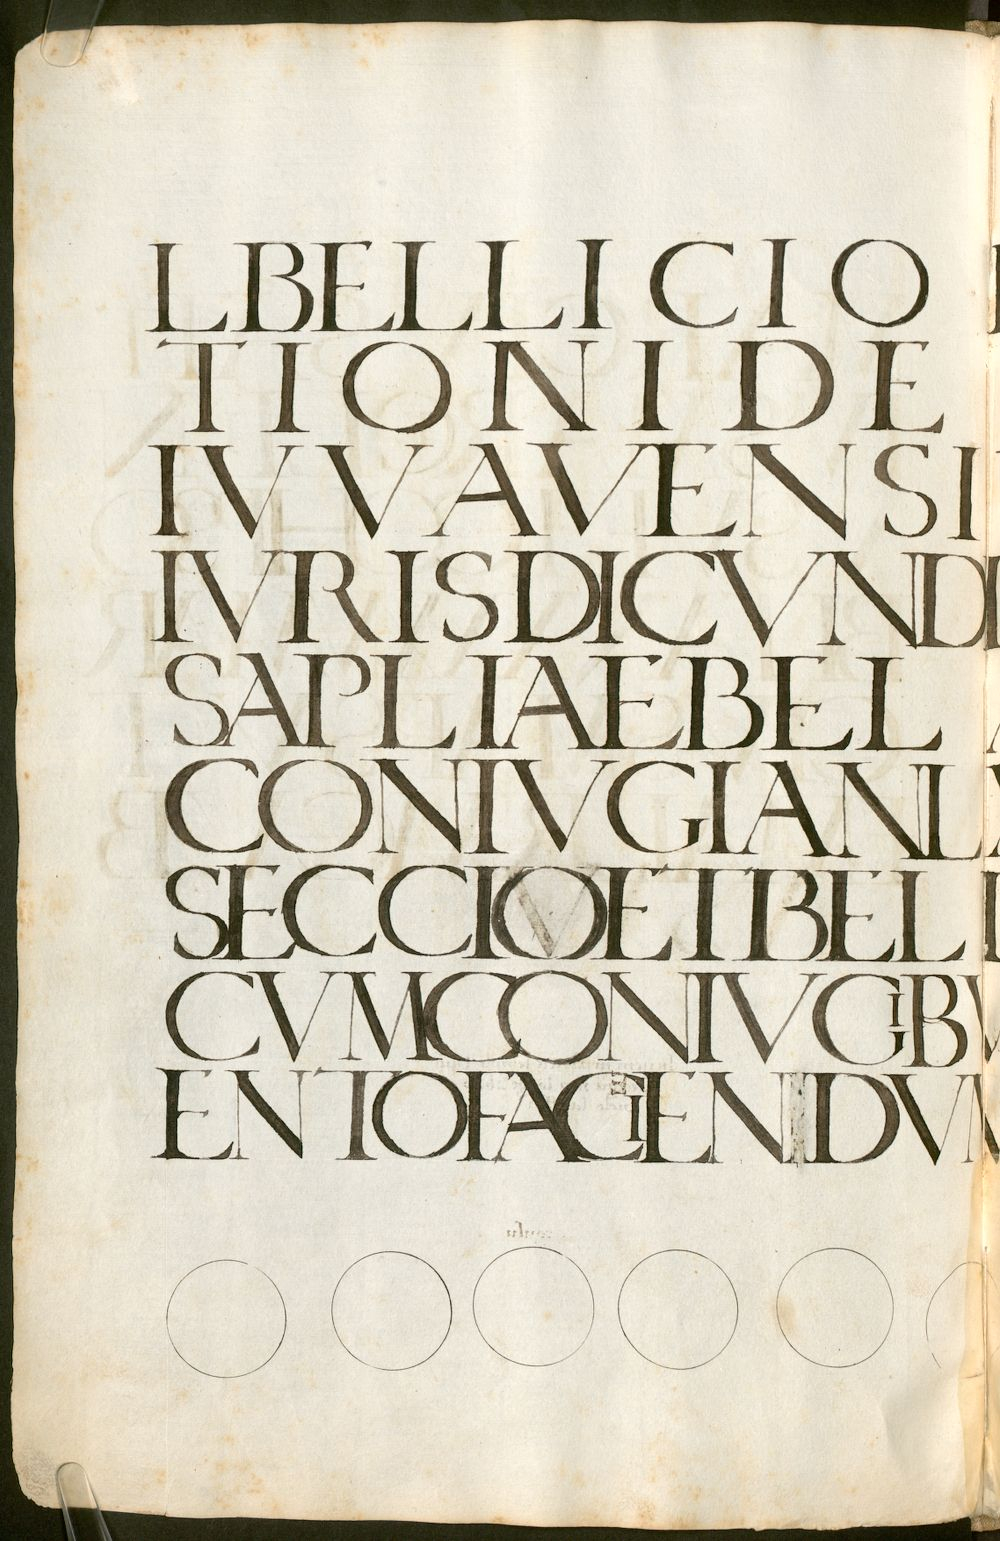 LBELLICIO
TIONIDE
IVVAVENSI
IVRISDICVND
SAPLIAEBEL
CONIVGIANL
SECCIOETBEL
CVMCONIVGIBV
ENTOFAGENIDVM